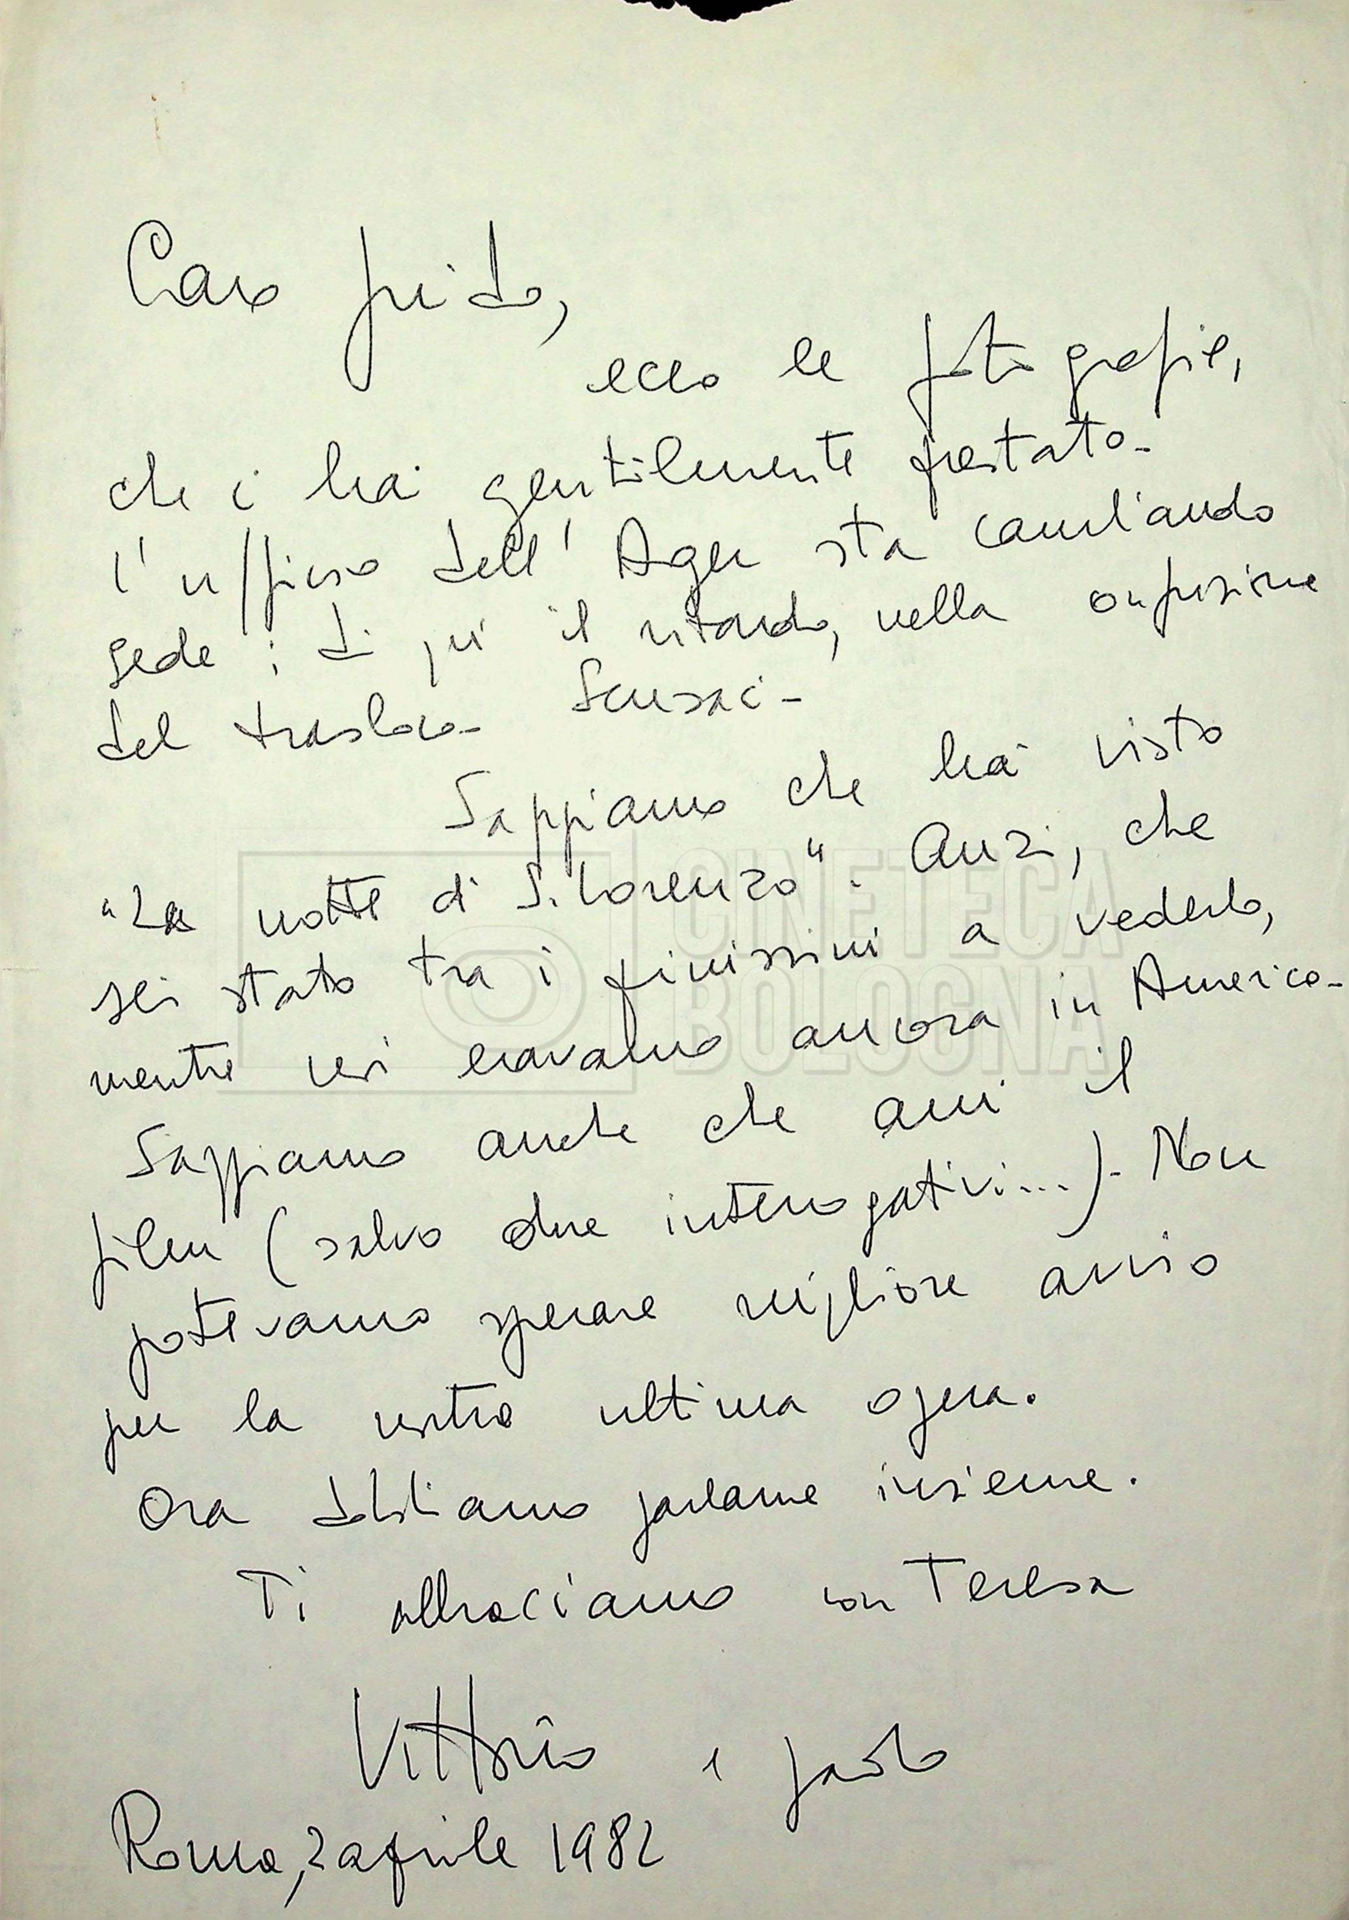 Caro Guido,
ecco le fotografie,
che ci hai gentilmente prestato-
l'ufficio dell'Ager sta cambiando
sede: di qui il ritardo, nella confusione
del trasloco- Scusaci-
Sappiamo che hai visto
"La notte di S. Lorenzo". Anzi, che
sei stato tra i primissimi a vederlo,
mentre noi eravamo ancora in America-
Sappiamo anche che ami il
film (salvo due interrogativi...)- Non
potevamo sperare migliore avvio
per la nostra ultima opera.
Ora dobbiamo parlarne insieme.
Ti abbracciamo con Teresa
Vittorio e Paolo
Roma, 2 aprile 1982
CINETECA
BOLOGNA